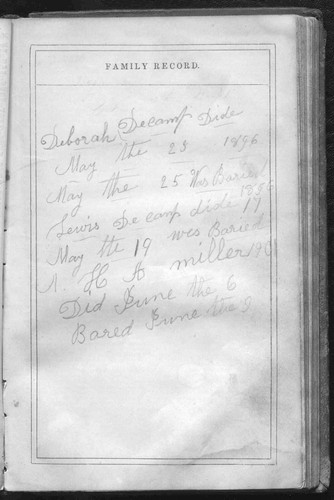 FAMILY RECORD.
Deborah Decamp Dide
May the 23 1896
May the 25 Was Baried
Lewis Decamp dide 17
1896
May the 19 wes Baried
H A miller
Did June the 6
Bared June the 9